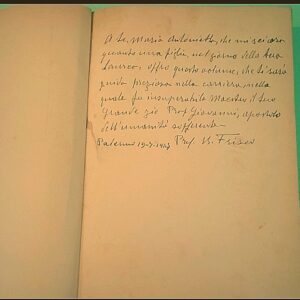 A te, Maria Antonietta, che mi sei cara
quanto una figlia, nel giorno della tua
Laurea, offro questo volume, che ti sarà
guida preziosa nella carriera, nella
quale fu insuperabile Maestro il tuo
Grande zio Prof. Giovanni, apostolo
dell'umanità sofferente
Palermo Prof. B. Frisco